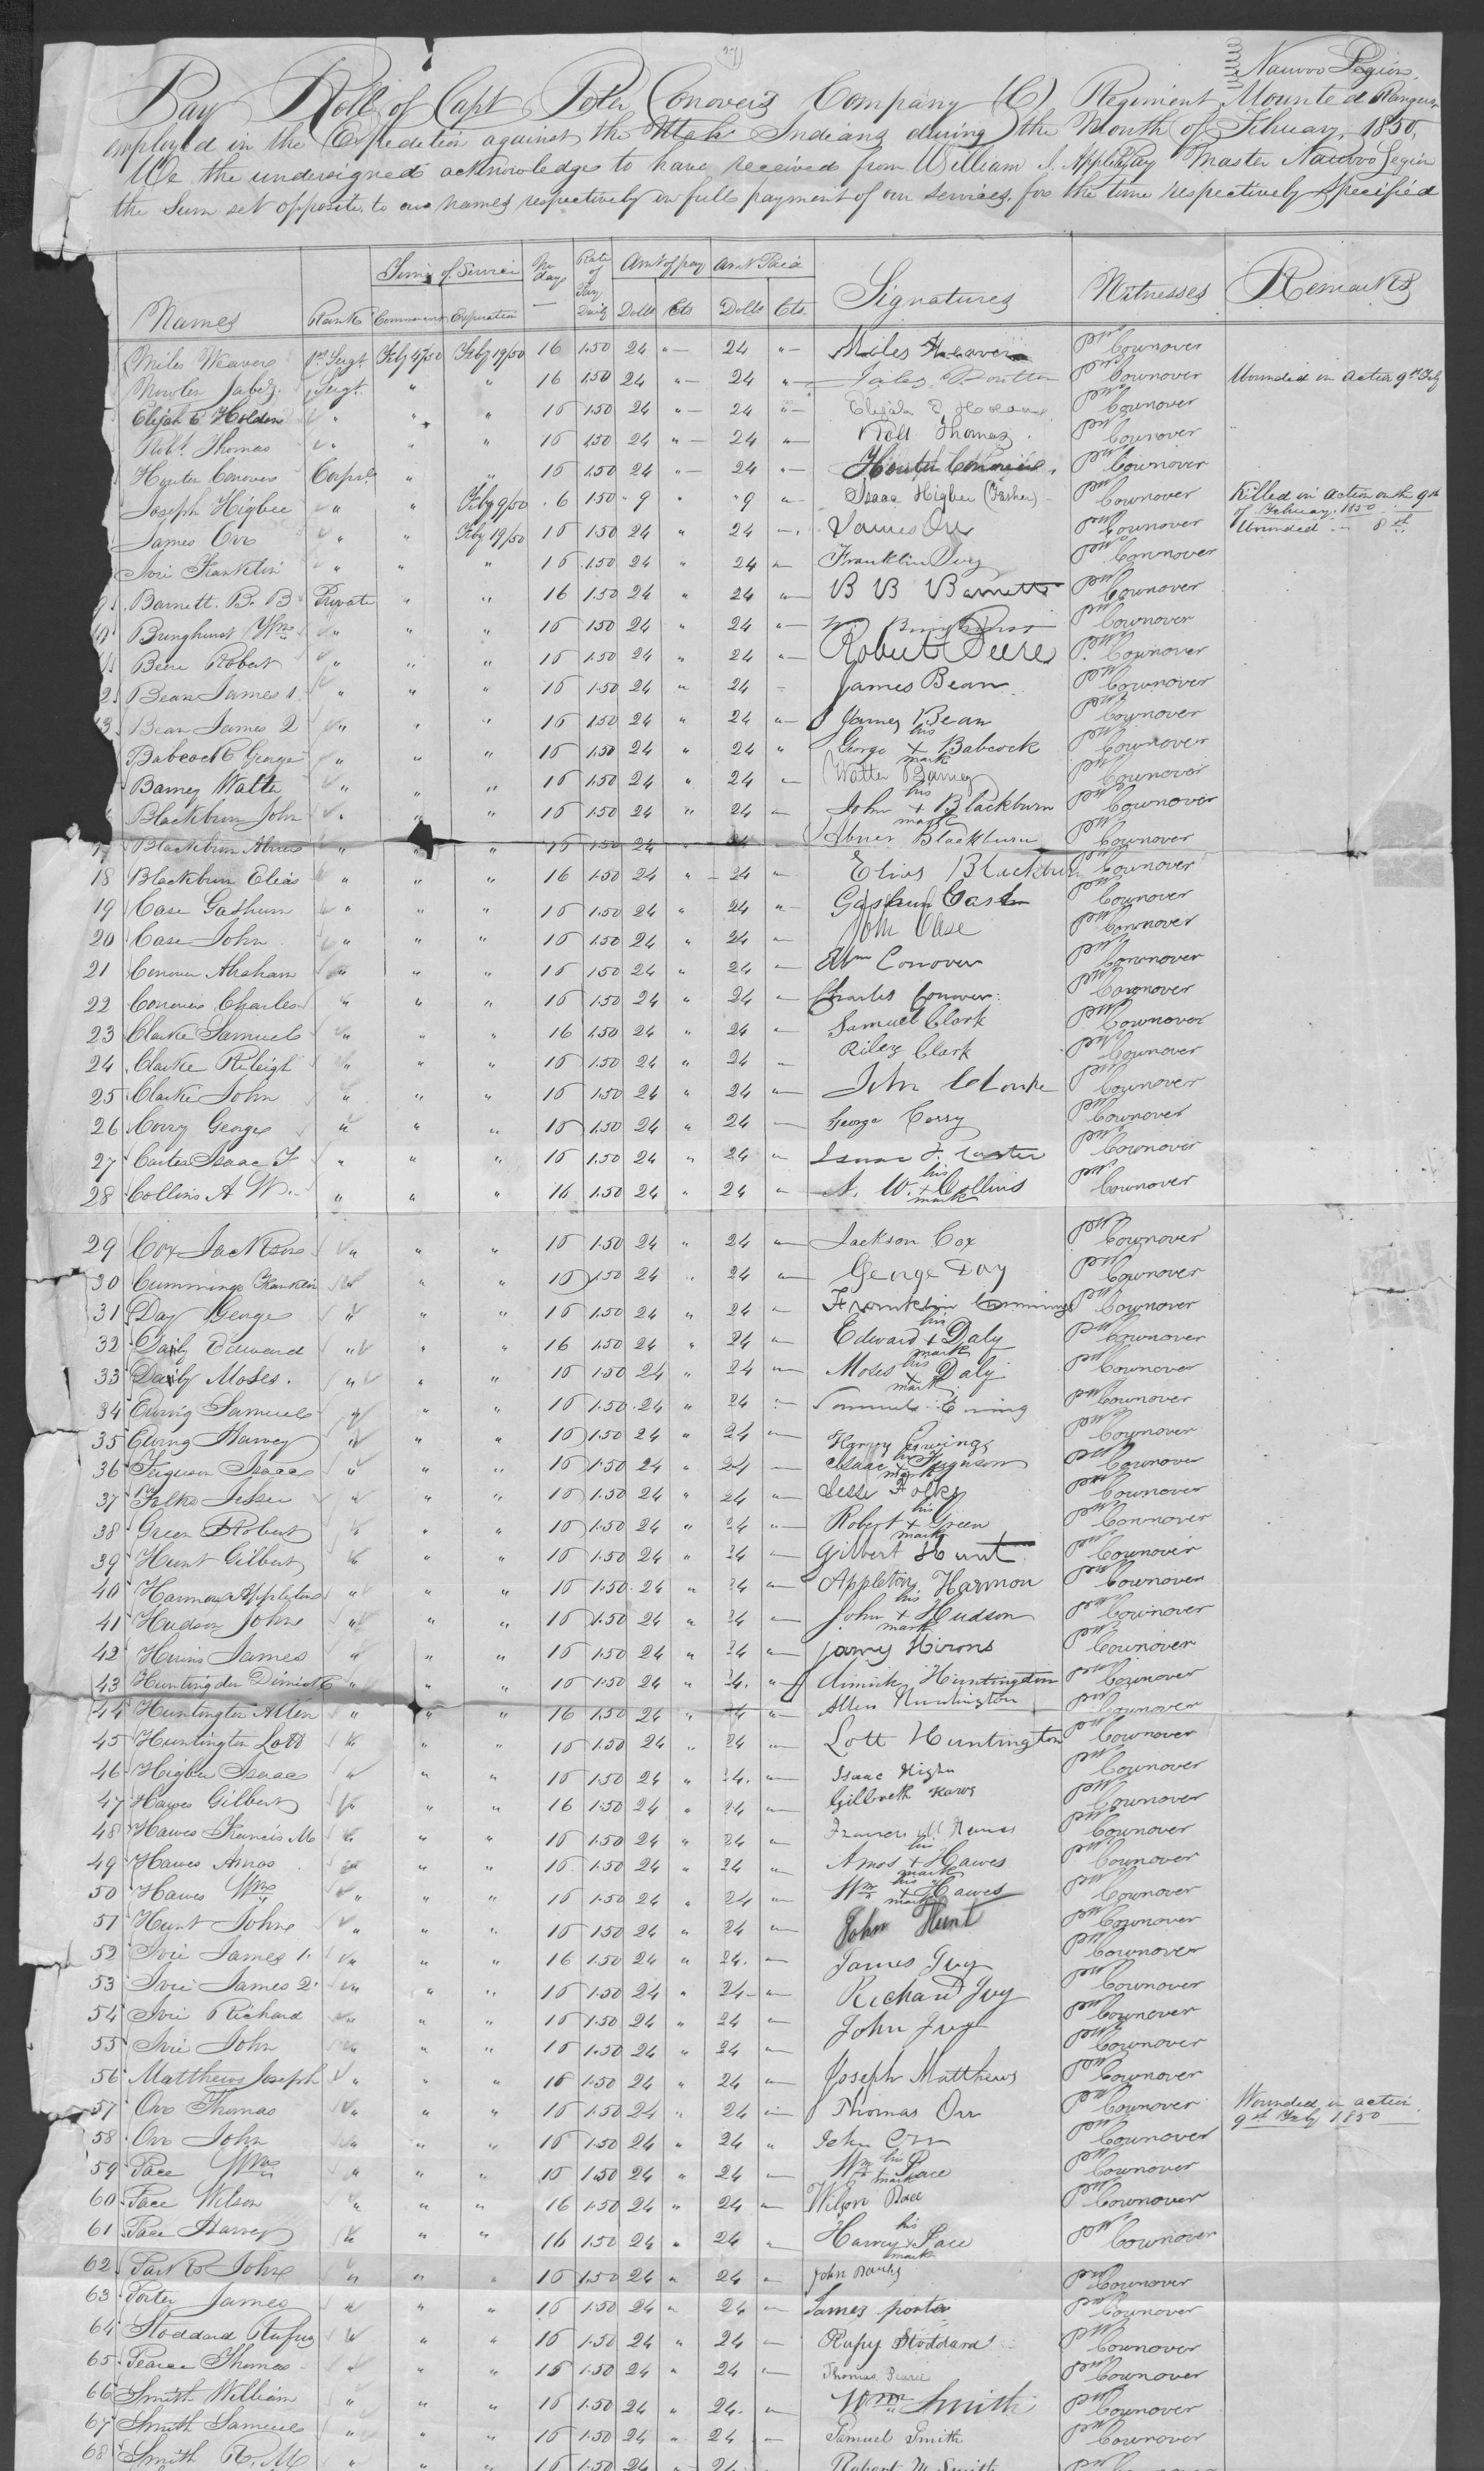 Nauvoo Legion
Pay Roll of Capt Peter Conovers Company (C) Regiment Mounted Rangers
employed in the Expedition against the Utah Indians during the Month of February, 1850,
We the undersigned acknowledge to have received from William I. Appleby Pay Master Nauvoo Legion
the Sum set opposite to our names respectively in full payment of our services, for the time respectively specified
Names Rank Time of Service Commencmt Expiration No days Rate of Pay Daily Amt of pay Dolls Cts Amt Paid Dolls Cts Signatures Witnesses Remarks
Miles Weaver 1st Sergt Feby 4/50 Feby 19/50 16 1.50 24 " 24 " Miles Weaver PW Cownover
Nowlin Jabez Sergt " " 16 1.50 24 " 24 " Jabez PW Cownover Wounded in action 9th Feby
Elijah E Holden " " " 16 1.50 24 " 24 " Elijah E Holden PW Cownover
Robt Thomas " " " 16 1.50 24 " 24 " Robt Thomas PW Cownover
Hunter Conover Corpl " " 16 1.50 24 " 24 " Houten Conover PW Cownover
Joseph Higbee " " Feby 9/50 6 1.50 9 " 9 " Isaac Higbee (Father) PW Cownover Killed in action on the 9th of February, 1850
James Orr " " Feby 19/50 16 1.50 24 " 24 " James Orr PW Cownover Wounded " 8th "
Ivie Franklin " " " 16 1.50 24 " 24 " Franklin Ivey PW Cownover
9 Barnett. B. B Private " " 16 1.50 24 " 24 " B B Barnett PW Cownover
10 Bringhurst Wm " " " 16 1.50 24 " 24 " Wm Bringhurst PW Cownover
Beere Robert " " " 16 1.50 24 " 24 " Robert Beere PW Cownover
2 Bean James 1 " " " 16 1.50 24 " 24 " James Bean PW Cownover
3 Bean James 2 " " " 16 1.50 24 " 24 " James Bean PW Cownover
Babcock George " " " 16 1.50 24 " 24 " George his + mark Babcock PW Cownover
Barney Walter " " " 16 1.50 24 " 24 " Walter Barney PW Cownover
Blackburn John " " " 16 1.50 24 " 24 " John his + mark Blackburn PW Cownover
17 Blackburn Abner " " " 16 1.50 24 " 24 " Abner Blackburn PW Cownover
18 Blackburn Elias " " " 16 1.50 24 " 24 " Elias Blackburn PW Cownover
19 Case Gashum " " " 16 1.50 24 " 24 " Gashum Case PW Cownover
20 Case John " " " 16 1.50 24 " 24 " John Case PW Cownover
21 Conover Abraham " " " 16 1.50 24 " 24 " Abm Conover PW Cownover
22 Conover Charles " " " 16 1.50 24 " 24 " Charles Conover PW Cownover
23 Clarke Samuel " " " 16 1.50 24 " 24 " Samuel Clark PW Cownover
24 Clarke Rileigh " " " 16 1.50 24 " 24 " Riley Clark PW Cownover
25 Clarke John " " " 16 1.50 24 " 24 " John Clarke PW Cownover
26 Corey George " " " 16 1.50 24 " 24 " George Corry PW Cownover
27 Carter Isaac F " " " 16 1.50 24 " 24 " Isaac F. Carter PW Cownover
28 Collins A W. " " " 16 1.50 24 " 24 " A. W. his + mark Collins PW Cownover
29 Cox Jackson " " " 16 1.50 24 " 24 " Jackson Cox PW Cownover
30 Cummings Franklin " " " 16 1.50 24 " 24 " George Day PW Cownover
31 Day George " " " 16 1.50 24 " 24 " Franklin Cummings PW Cownover
32 Daily Edward " " " 16 1.50 24 " 24 " Edward his + mark Daly PW Cownover
33 Daily Moses. " " " 16 1.50 24 " 24 " Moses his + mark Daly PW Cownover
34 Ewing Samuel " " " 16 1.50 24 " 24 " Samuel Ewing PW Cownover
35 Ewing Harvey " " " 16 1.50 24 " 24 " Harvey Ewing PW Cownover
36 Ferguson Isaac " " " 16 1.50 24 " 24 " Isaac his + mark Ferguson PW Cownover
37 Falks Jesse " " " 16 1.50 24 " 24 " Jesse Folks PW Cownover
38 Green Robert " " " 16 1.50 24 " 24 " Robert his + mark Green PW Cownover
39 Hunt Gilbert " " " 16 1.50 24 " 24 " Gilbert Hunt PW Cownover
40 Harmon Appleton " " " 16 1.50 24 " 24 " Appleton Harmon PW Cownover
41 Hudson John " " " 16 1.50 24 " 24 " John his + mark Hudson PW Cownover
42 Hirins James " " " 16 1.50 24 " 24 " James Hirons PW Cownover
43 Huntington Dimick " " " 16 1.50 24 " 24. " dimick Huntington PW Cownover
44 Huntington Allen " " " 16 1.50 24 " 24 " Allen Huntington PW Cownover
45 Huntington Lott " " " 16 1.50 24 " 24 " Lott Huntington PW Cownover
46 Higbee Isaac " " " 16 1.50 24 " 24. " Isaac Higbee PW Cownover
47 Hawes Gilbert " " " 16 1.50 24 " 24 " Gilbreth Haws PW Cownover
48 Hawes Francis M " " " 16 1.50 24 " 24 " Francis M Hawes PW Cownover
49 Hawes Amos " " " 16 1.50 24 " 24 " Amos his + mark Hawes PW Cownover
50 Hawes Wm " " " 16 1.50 24 " 24 " Wm his + mark Hawes PW Cownover
51 Hunt John " " " 16 1.50 24 " 24 " John Hunt PW Cownover
52 Ivie James 1. " " " 16 1.50 24 " 24. " James Ivy PW Cownover
53 Ivie James 2 " " " 16 1.50 24 " 24 " Richard Ivy PW Cownover
54 Ivie Richard " " " 16 1.50 24 " 24 " John Ivy PW Cownover
55 Ivie John " " " 16 1.50 24 " 24 " PW Cownover
56 Matthews Joseph " " " 16 1.50 24 " 24 " Joseph Matthews PW Cownover
57 Orr Thomas " " " 16 1.50 24 " 24 " Thomas Orr PW Cownover Wounded in action 9th Feby 1850
58 Orr John " " " 16 1.50 24 " 24 " John Orr PW Cownover
59 Pace Wm " " " 16 1.50 24 " 24 " Wm his + mark Pace PW Cownover
60 Pace Wilson " " " 16 1.50 24 " 24 " Wilson Pace PW Cownover
61 Pace Harvey " " " 16 1.50 24 " 24 " Harvey his + mark Pace PW Cownover
62 Parks John " " " 16 1.50 24 " 24 " John Parks PW Cownover
63 Porter James " " " 16 1.50 24 " 24 " James porter PW Cownover
64 Stoddard Rufus " " " 16 1.50 24 " 24 " Rufus Stoddard PW Cownover
65 Pearce Thomas " " " 16 1.50 24 " 24 " Thomas Pearce PW Cownover
66 Smith William " " " 16 1.50 24 " 24. " Wm Smith PW Cownover
67 Smith Samuel " " " 16 1.50 24 " 24 " Samuel Smith PW Cownover
68 Smith R. M " " " 16 1.50 24 " 24 " Robert M Smith